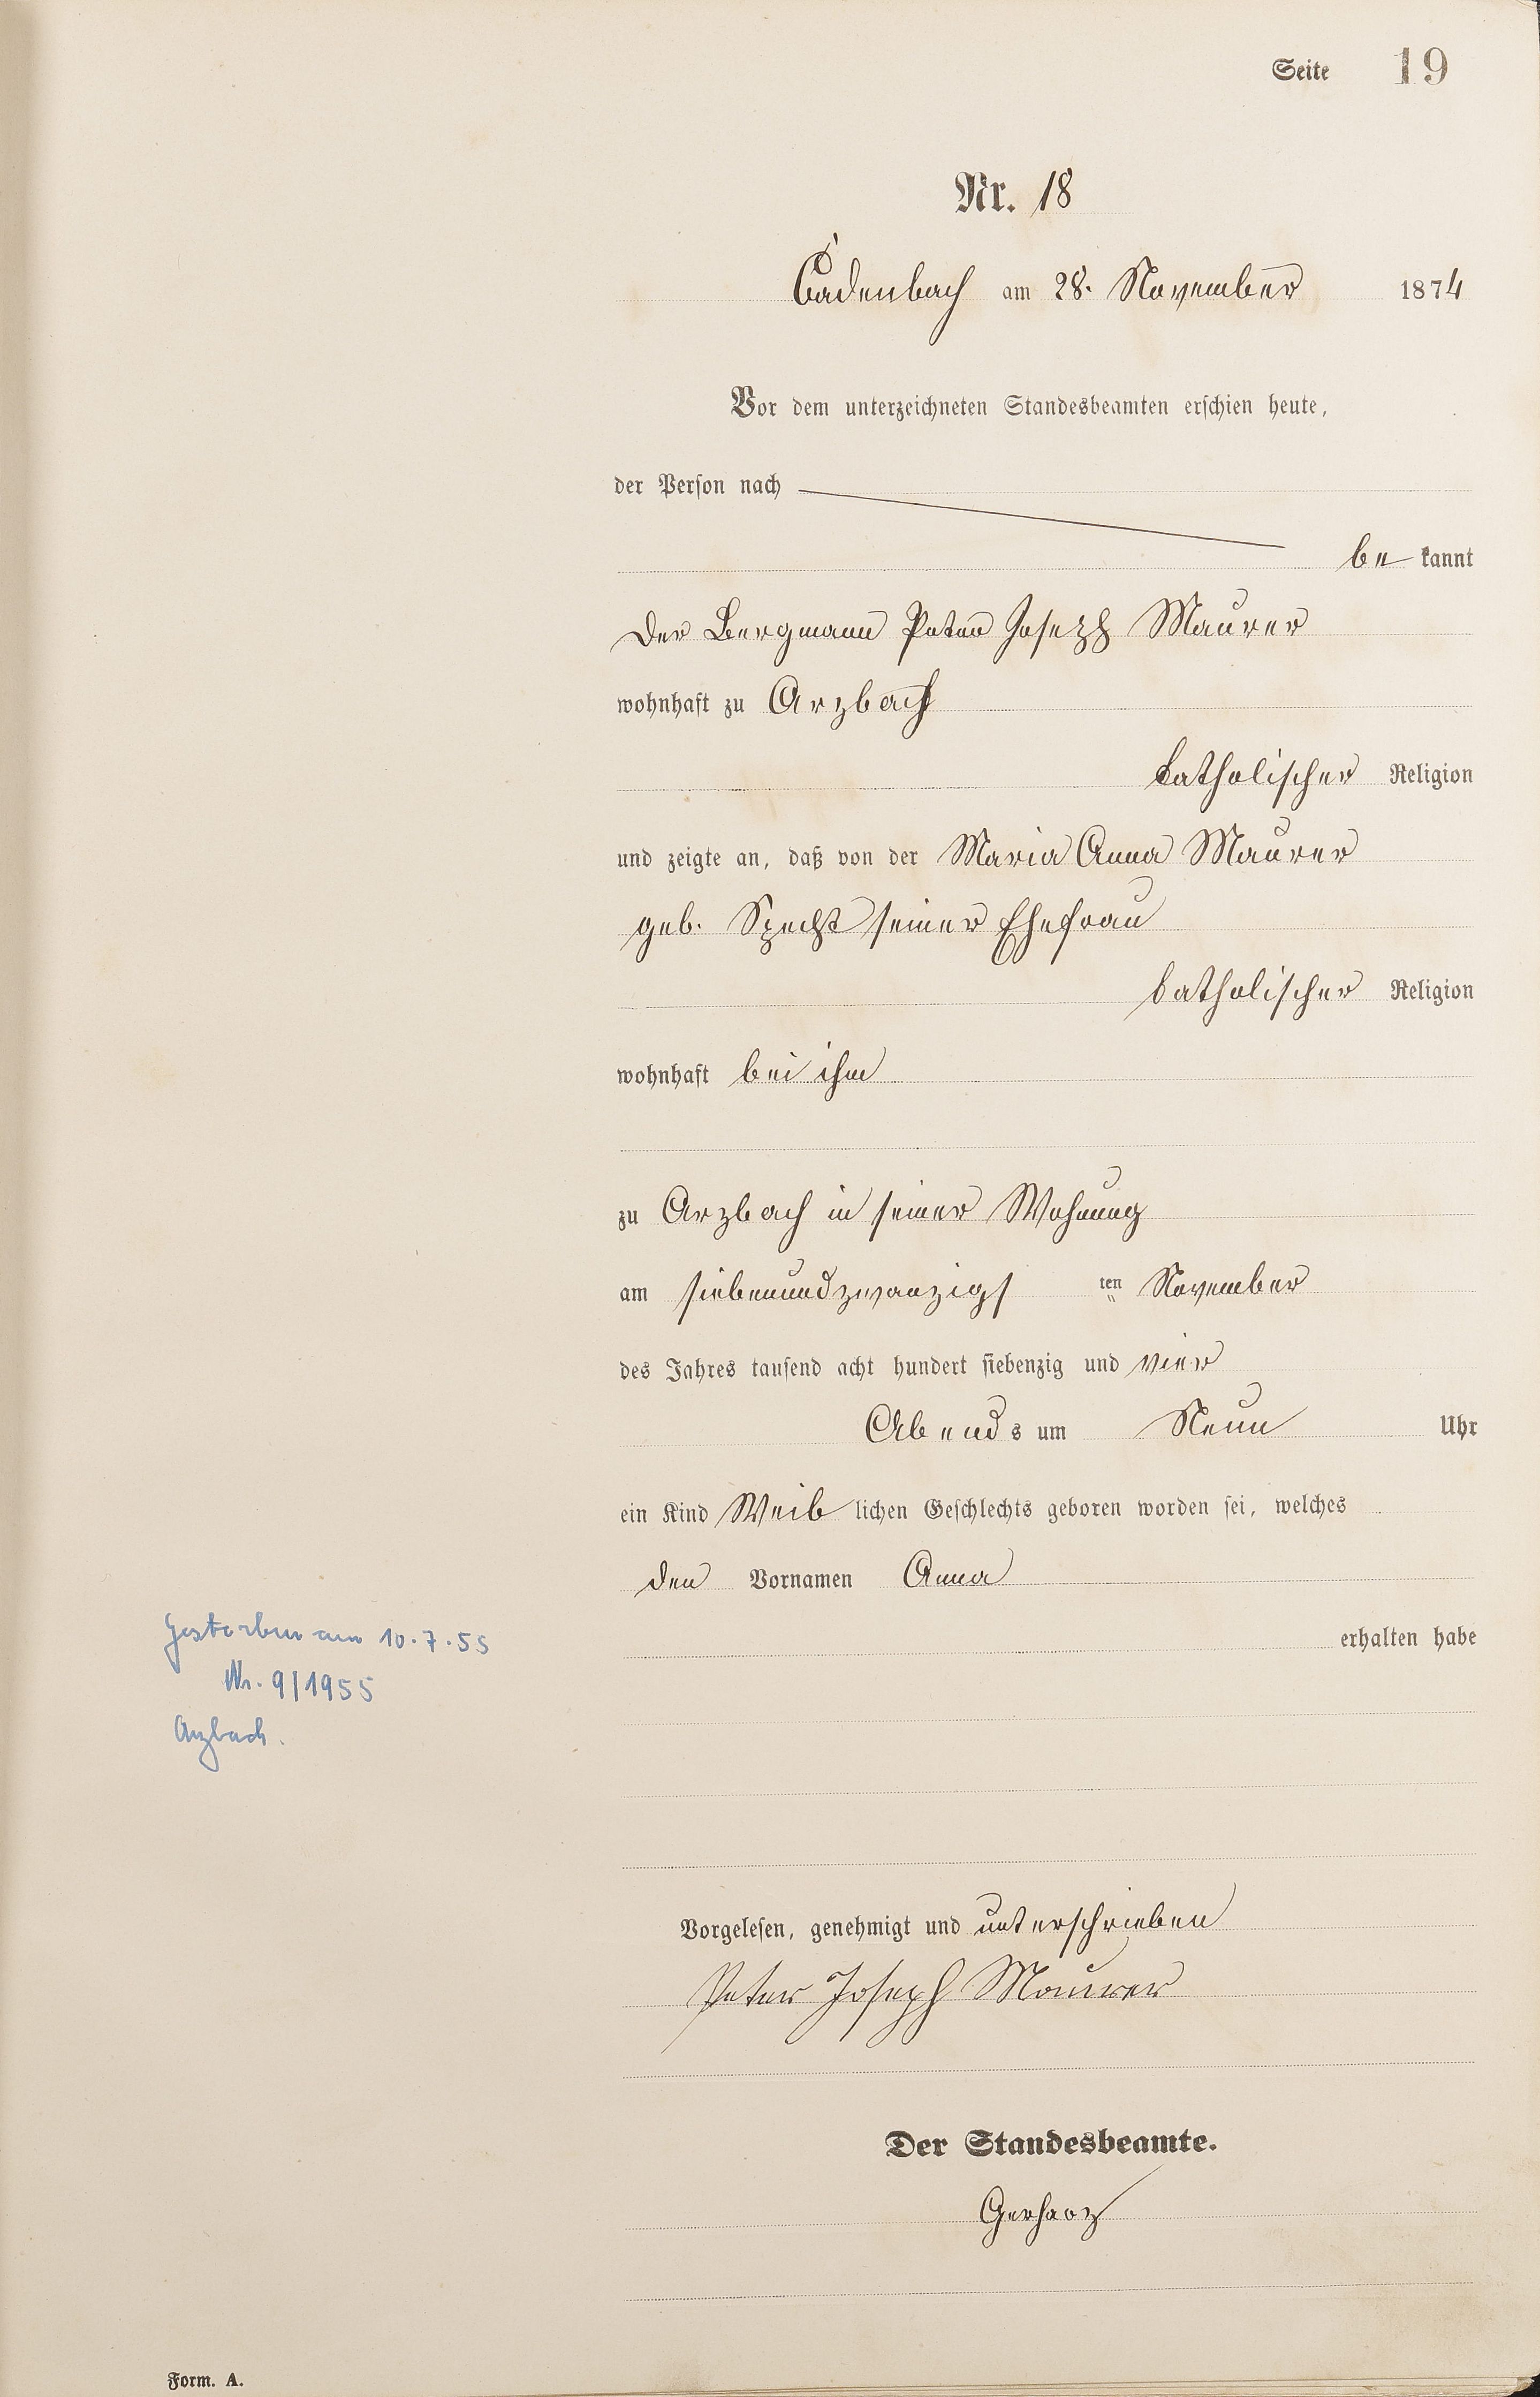 Seite 19
Nr. 18
Cadenbach am 28. November 1874
Vor dem unterzeichneten Standesbeamten erschien heute,
der Person nach
be kannt
der Bergmann Peter Joseph Maurer
wohnhaft zu Arzbach
katholischer Religion
und zeigte an, daß von der Maria Anna Maurer
geb. Specht seiner Ehefrau
katholischer Religion
wohnhaft bei ihm
zu Arzbach in seiner Wohnung
am siebenundzwanzigs ten November
des Jahres tausend acht hundert siebenzig und vier
Abends um Neun Uhr
ein Kind Weib lichen Geschlechts geboren worden sei, welches
den Vornamen Anna
erhalten habe
Gestorben am 10.7.55
Nr. 9/1955
Arzbach.
Vorgelesen, genehmigt und unterschrieben
Peter Joseph Maurer
Der Standesbeamte.
Gerharz
Form. A.